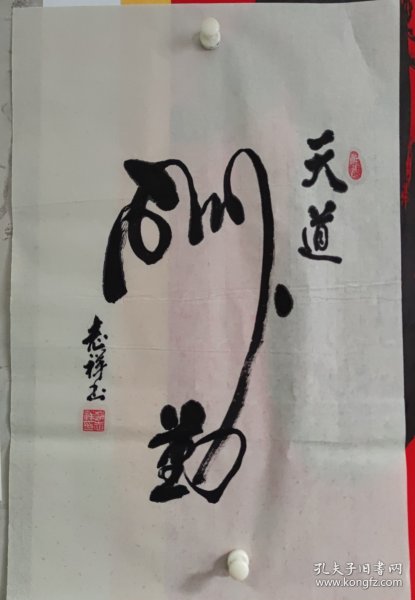 天道
酬
勤
志祥书
孔夫子旧书网
www.kongfz.com